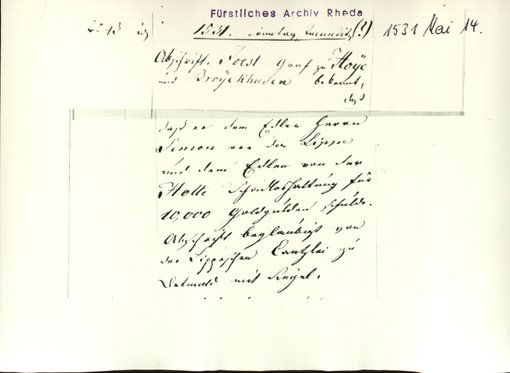 Fürstliches Archiv Rheda
1531. Sonntag (?) 1531 Mai 14.
Abschrift. Joest Graf zu Hoÿe
und Broÿckhusen bekennt,
daß
daß er dem Edlen Herrn
Simon von der Lippe
und dem Edlen von der
Holte Schadloshaltung für
10,000 Goldgulden schulde.
Abschrift beglaubigt von
der Lippischen Canzlei zu
Detmold mit Siegel.